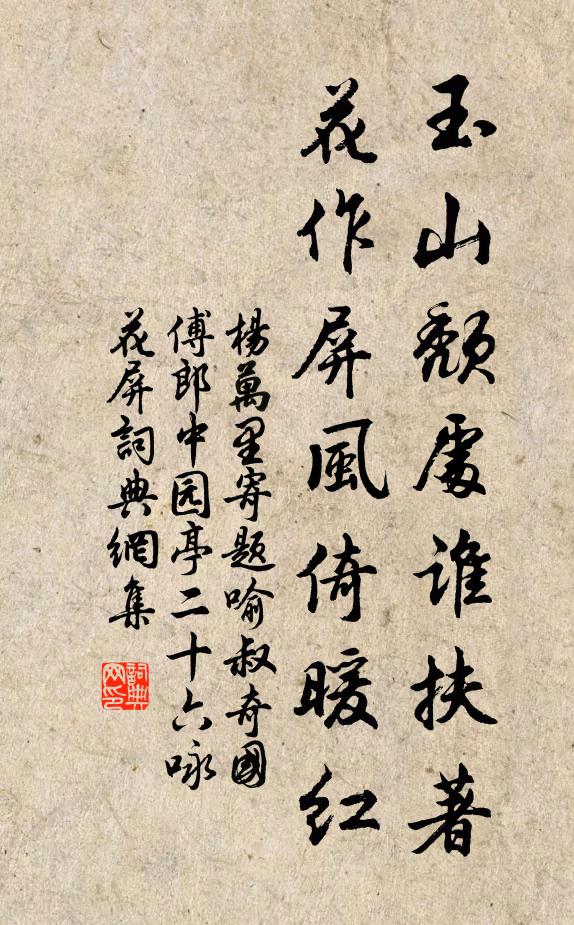 玉山頹處誰扶著
花作屏風倚暖红
楊萬里寄題喻叔奇國
傅郎中园亭二十六咏
花屏詞典網集
詞典网印